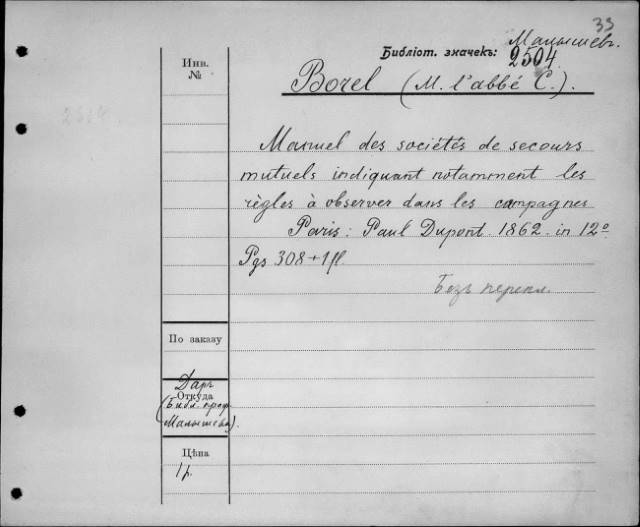 33
Малышев.
Библіот. значекъ: 2504
Инв.
№
Borel (M. l'abbé C.).
Manuel des sociétés de secours
mutuels indiquant notamment les
règles à observer dans les campagnes
Paris: Paul Dupont 1862 in 12º
Pgs 308+1fl.
Безъ перепл.
По заказу
Даръ
Откуда
(Библ. проф.
Малышева).
Цѣна
1р.